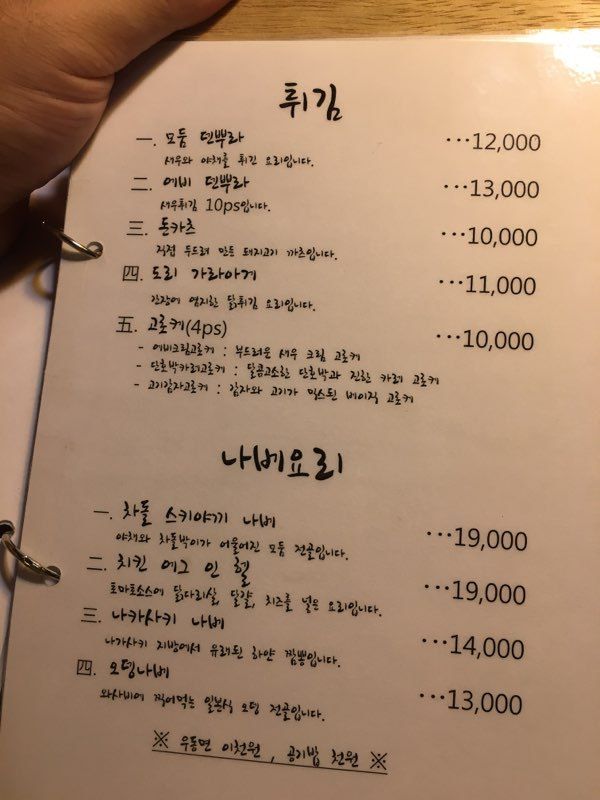 튀김
一. 모둠 덴뿌라 ···12,000
새우와 야채를 튀긴 요리입니다.
二. 에비 덴뿌라 ···13,000
새우튀김 10ps입니다.
三. 돈카츠 ···10,000
직접 두드려 만든 돼지고기 까츠입니다.
四. 도리 가라아게 ···11,000
간장에 염지한 닭튀김 요리입니다.
五. 고로케(4ps) ···10,000
- 에비크림고로케 : 부드러운 새우 크림 고로케
- 단호박카레고로케 : 달콤고소한 단호박과 진한 카레 고로케
- 고기감자고로케 : 감자와 고기가 믹스된 베이직 고로케
나베요리
一. 차돌 스키야끼 나베 ···19,000
야채와 차돌박이가 어울어진 모둠 전골입니다.
二. 치킨 에그 인 헬 ···19,000
토마토소스에 닭다리살, 달걀, 치즈를 넣은 요리입니다.
三. 나카사키 나베 ···14,000
나가사키 지방에서 유래된 하얀 짬뽕입니다.
四. 오뎅나베 ···13,000
와사비에 찍어먹는 일본식 오뎅 전골입니다.
※ 우동면 이천원 , 공기밥 천원 ※